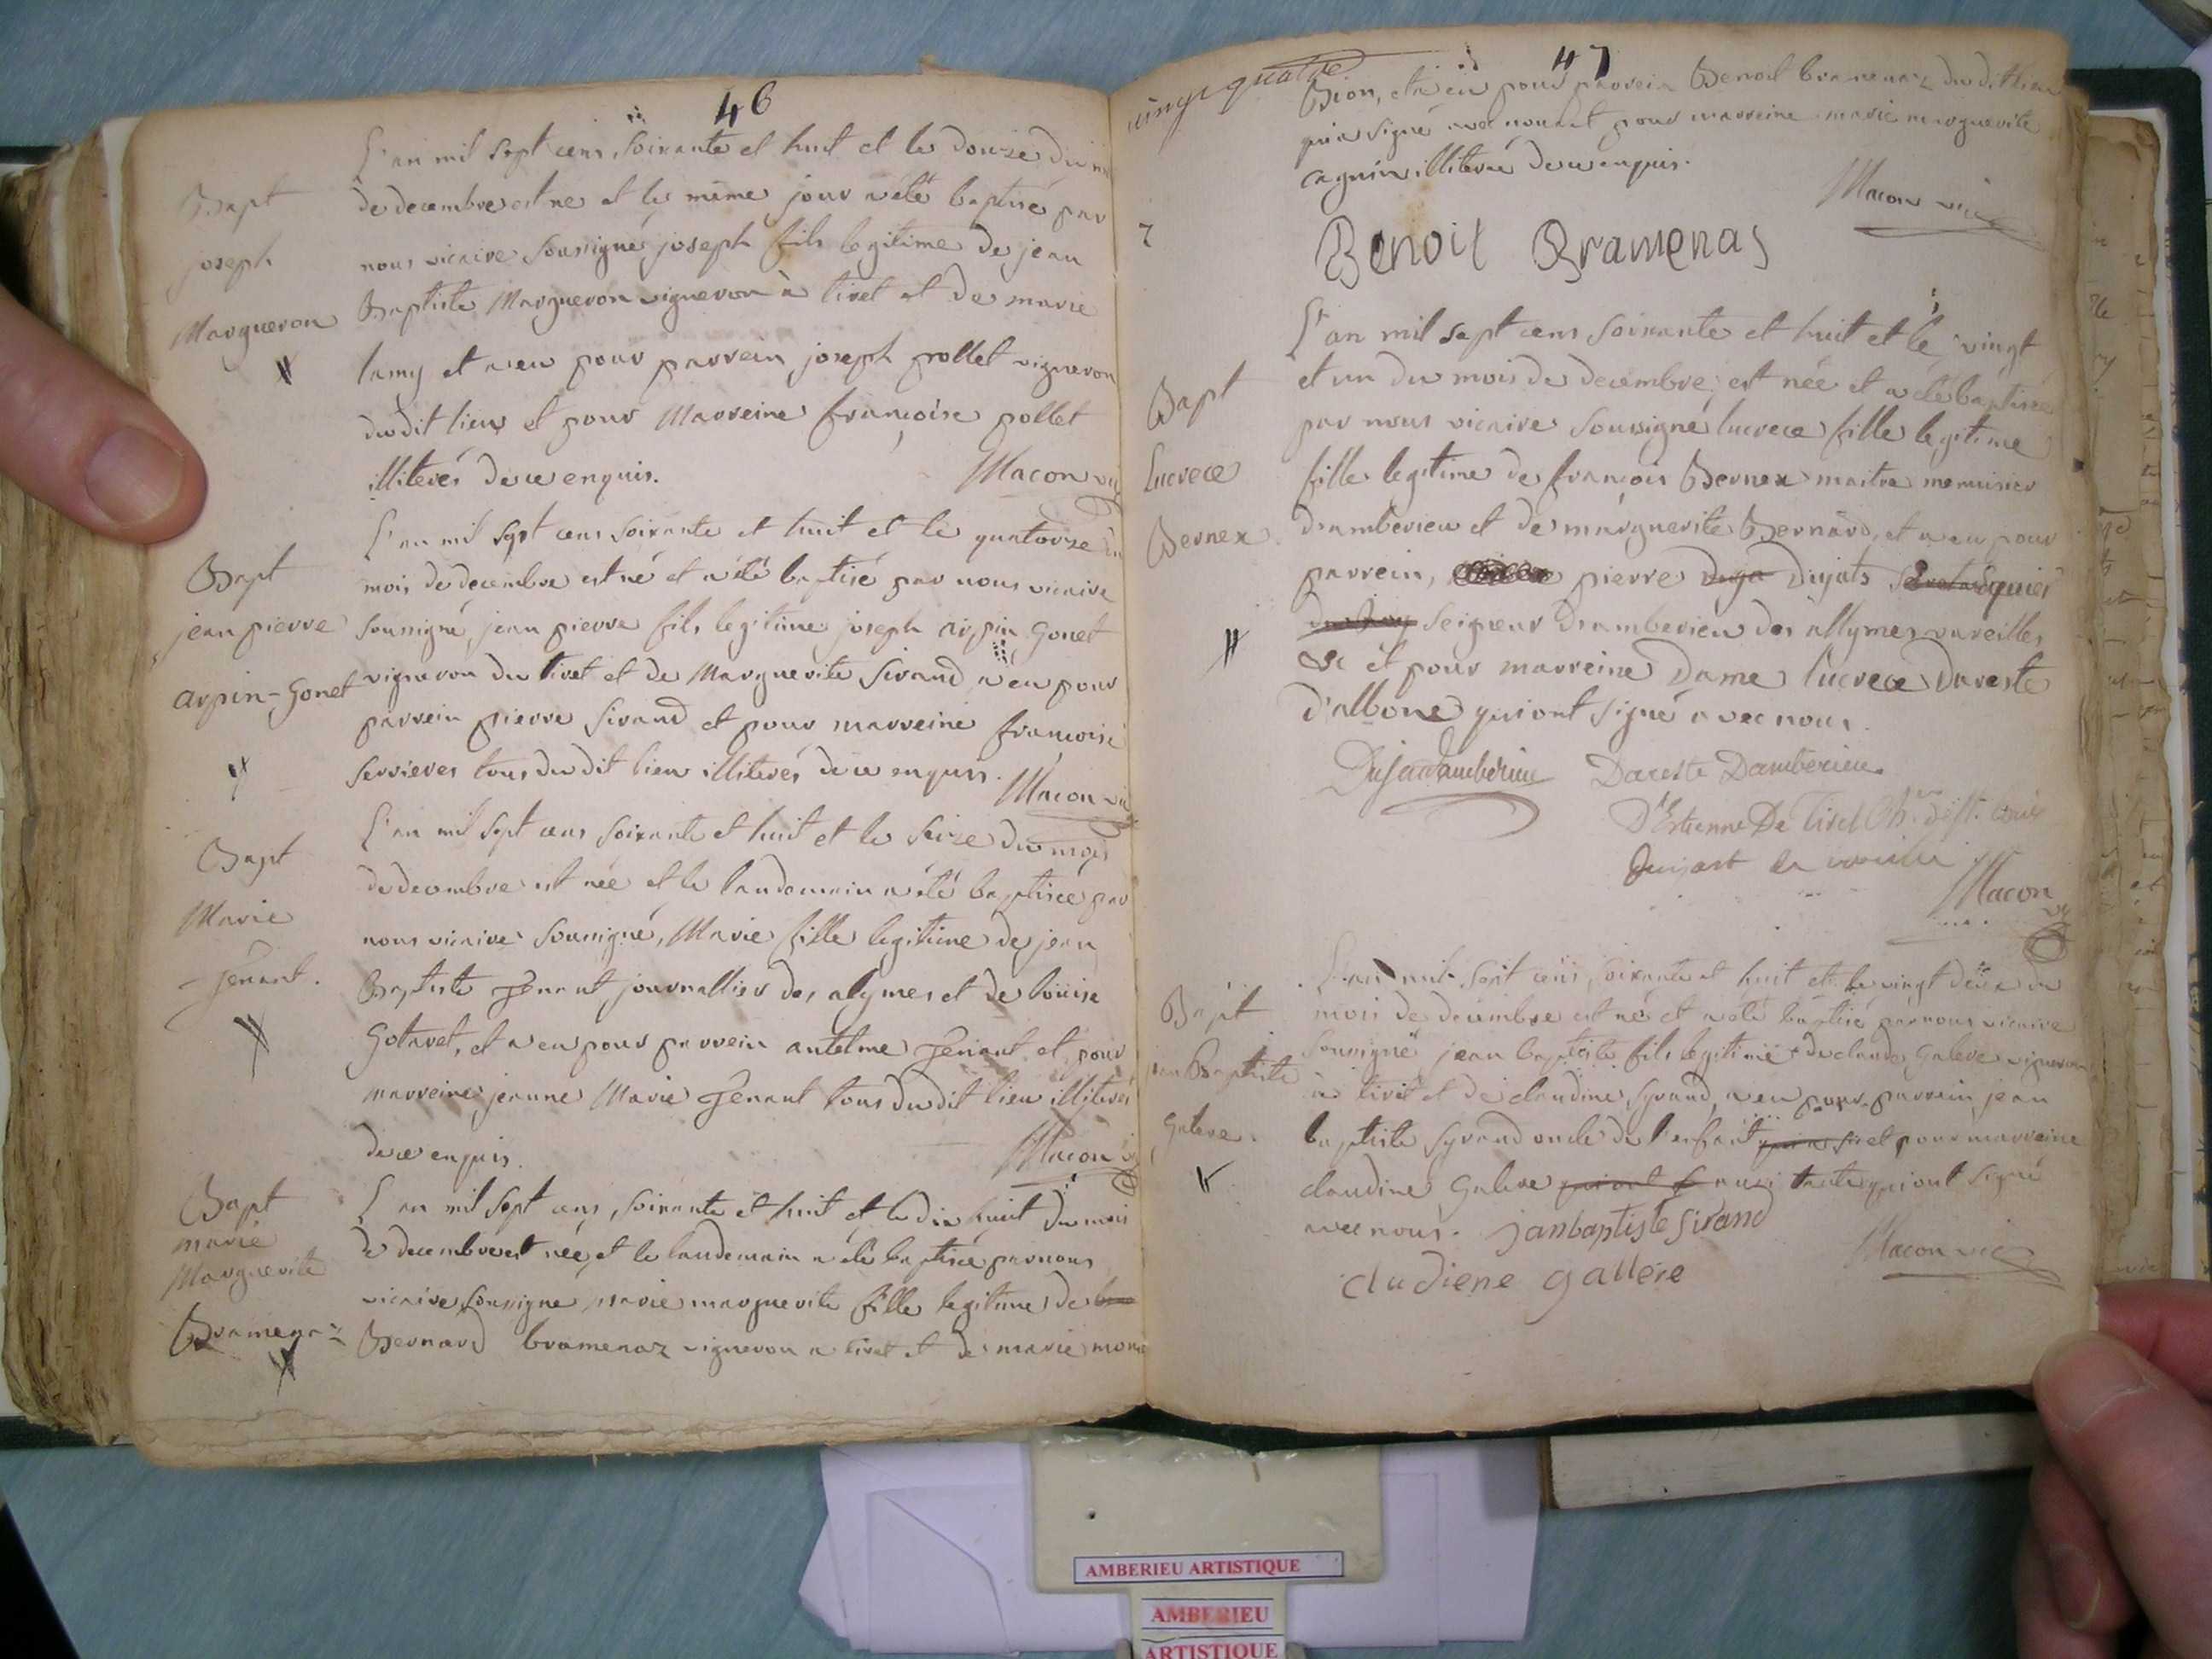 46
L'an mil sept cens soixante et huit et le douze du
Bapt
de decembre est né et le même jour a été baptisé par
joseph
nous vicaire soussigné joseph fils legitime de jean
Margueron
Baptiste Margueron vigneron à tiret et de marie
lamy et a eu pour parrein joseph pollet vigneron
du dit lieu et pour Marreine françoise pollet
illiterés de ce enquis. Macon vic
L'an mil sept cens soixante et huit et le quatorze du
Bapt
mois de decembre est né et a été baptisé par nous vicaire
jean pierre
soussigné, jean pierre fils legitime joseph arpin Gonet
arpin-Gonet
vigneron du tiret et de Marguerite sirand a eu pour
parrein pierre sirand et pour marreine françoise
servieres tous du dit lieu illiterés de ce enquis. Macon vic
L'an mil sept cens soixante et huit et le seize du mois
Bapt
de decembre est née et le landemain a été baptisée par
Marie
nous vicaire soussigné, Marie fille legitime de jean
Jenant.
Baptiste Jenant journallier des alymes et de loüise
Gotaret, et a eu pour parrein antelme Jenant et pour
marreine jeanne Marie Jenant tous du dit lieu illiterés
de ce enquis. Macon
L'an mil sept cens soixante et huit et le dix huit du mois
Bapt
de decembre est née, et le landemain a été baptisée par nous
marie
Marguerite
vicaire soussigné marie marguerite fille legitime de
Bramenaz
Bernard bramenaz vigneron a tiret et de marie
vingt quatre
47
Bion, et a eu pour parrein Benoit bramenaz du dit lieu
qui a signé avec nous et pour marreine marie marguerite
cagnin illiterée de ce enquis.
Macon vic
7
Benoit Bramenas
L'an mil sept cens soixante et huit et le vingt
et un du mois de decembre, est née et a été baptisée
Bapt
par nous vicaire soussigné lucrece fille legitime
Lucrece
fille legitime de françois Bernex maitre menuisier
Bernex.
d'amberieu et de marguerite Bernard, et a eu pour
parrein, pierre Dujats
seigneur d'amberieu des allymes vareilles
&c et pour marreine Dame lucrece Dareste
d'albone qui ont signé avec nous.
Dujatdamberieu Dareste Damberieu
D'Estienne De Tiret
Dujast de vareille
Macon
L'an mil sept cens soixante et huit et le vingt deux du
Bapt
mois de decembre est né et a été baptisé par nous vicaire
jean Baptiste
soussigné jean baptiste fils legitime de claude Galere vigneron
à tiret et de claudine syrand, a eu pour parrein jean
Galere.
baptiste syrand oncle de l'enfant et pour marreine
claudine Galere aussi tante qui ont signé
avec nous. janbaptiste sirand
Macon vic
cludiene gallere
AMBERIEU ARTISTIQUE
AMBERIEU
ARTISTIQUE